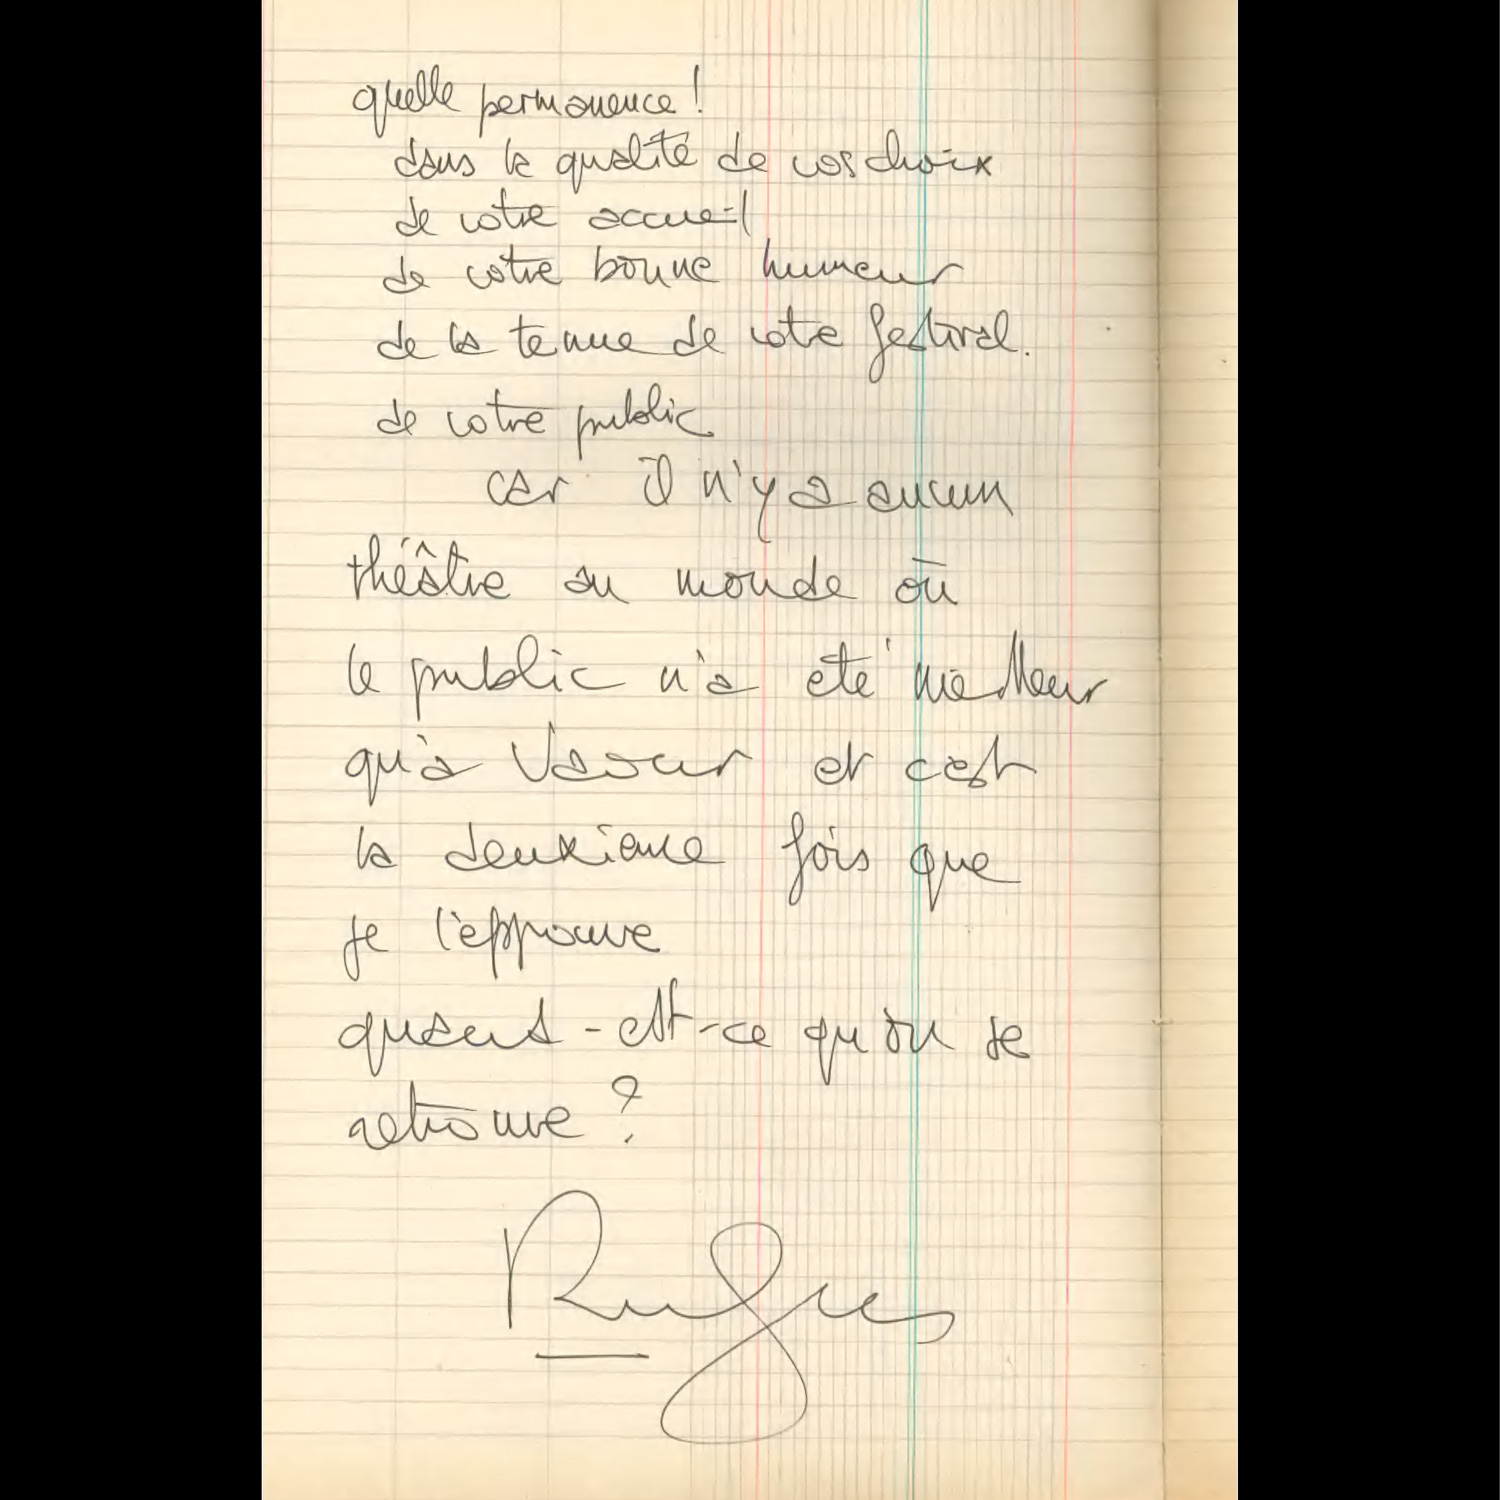 quelle permanence !
dans la qualité de vos choix
de votre accueil
de votre bonne humeur
de la tenue de votre festival.
de votre public
car il n'y a aucun
théâtre au monde où
le public n'a été meilleur
qu'à Vaour et c'est
la deuxième fois que
je l'éprouve
quand-est-ce qu'on se
retrouve ?